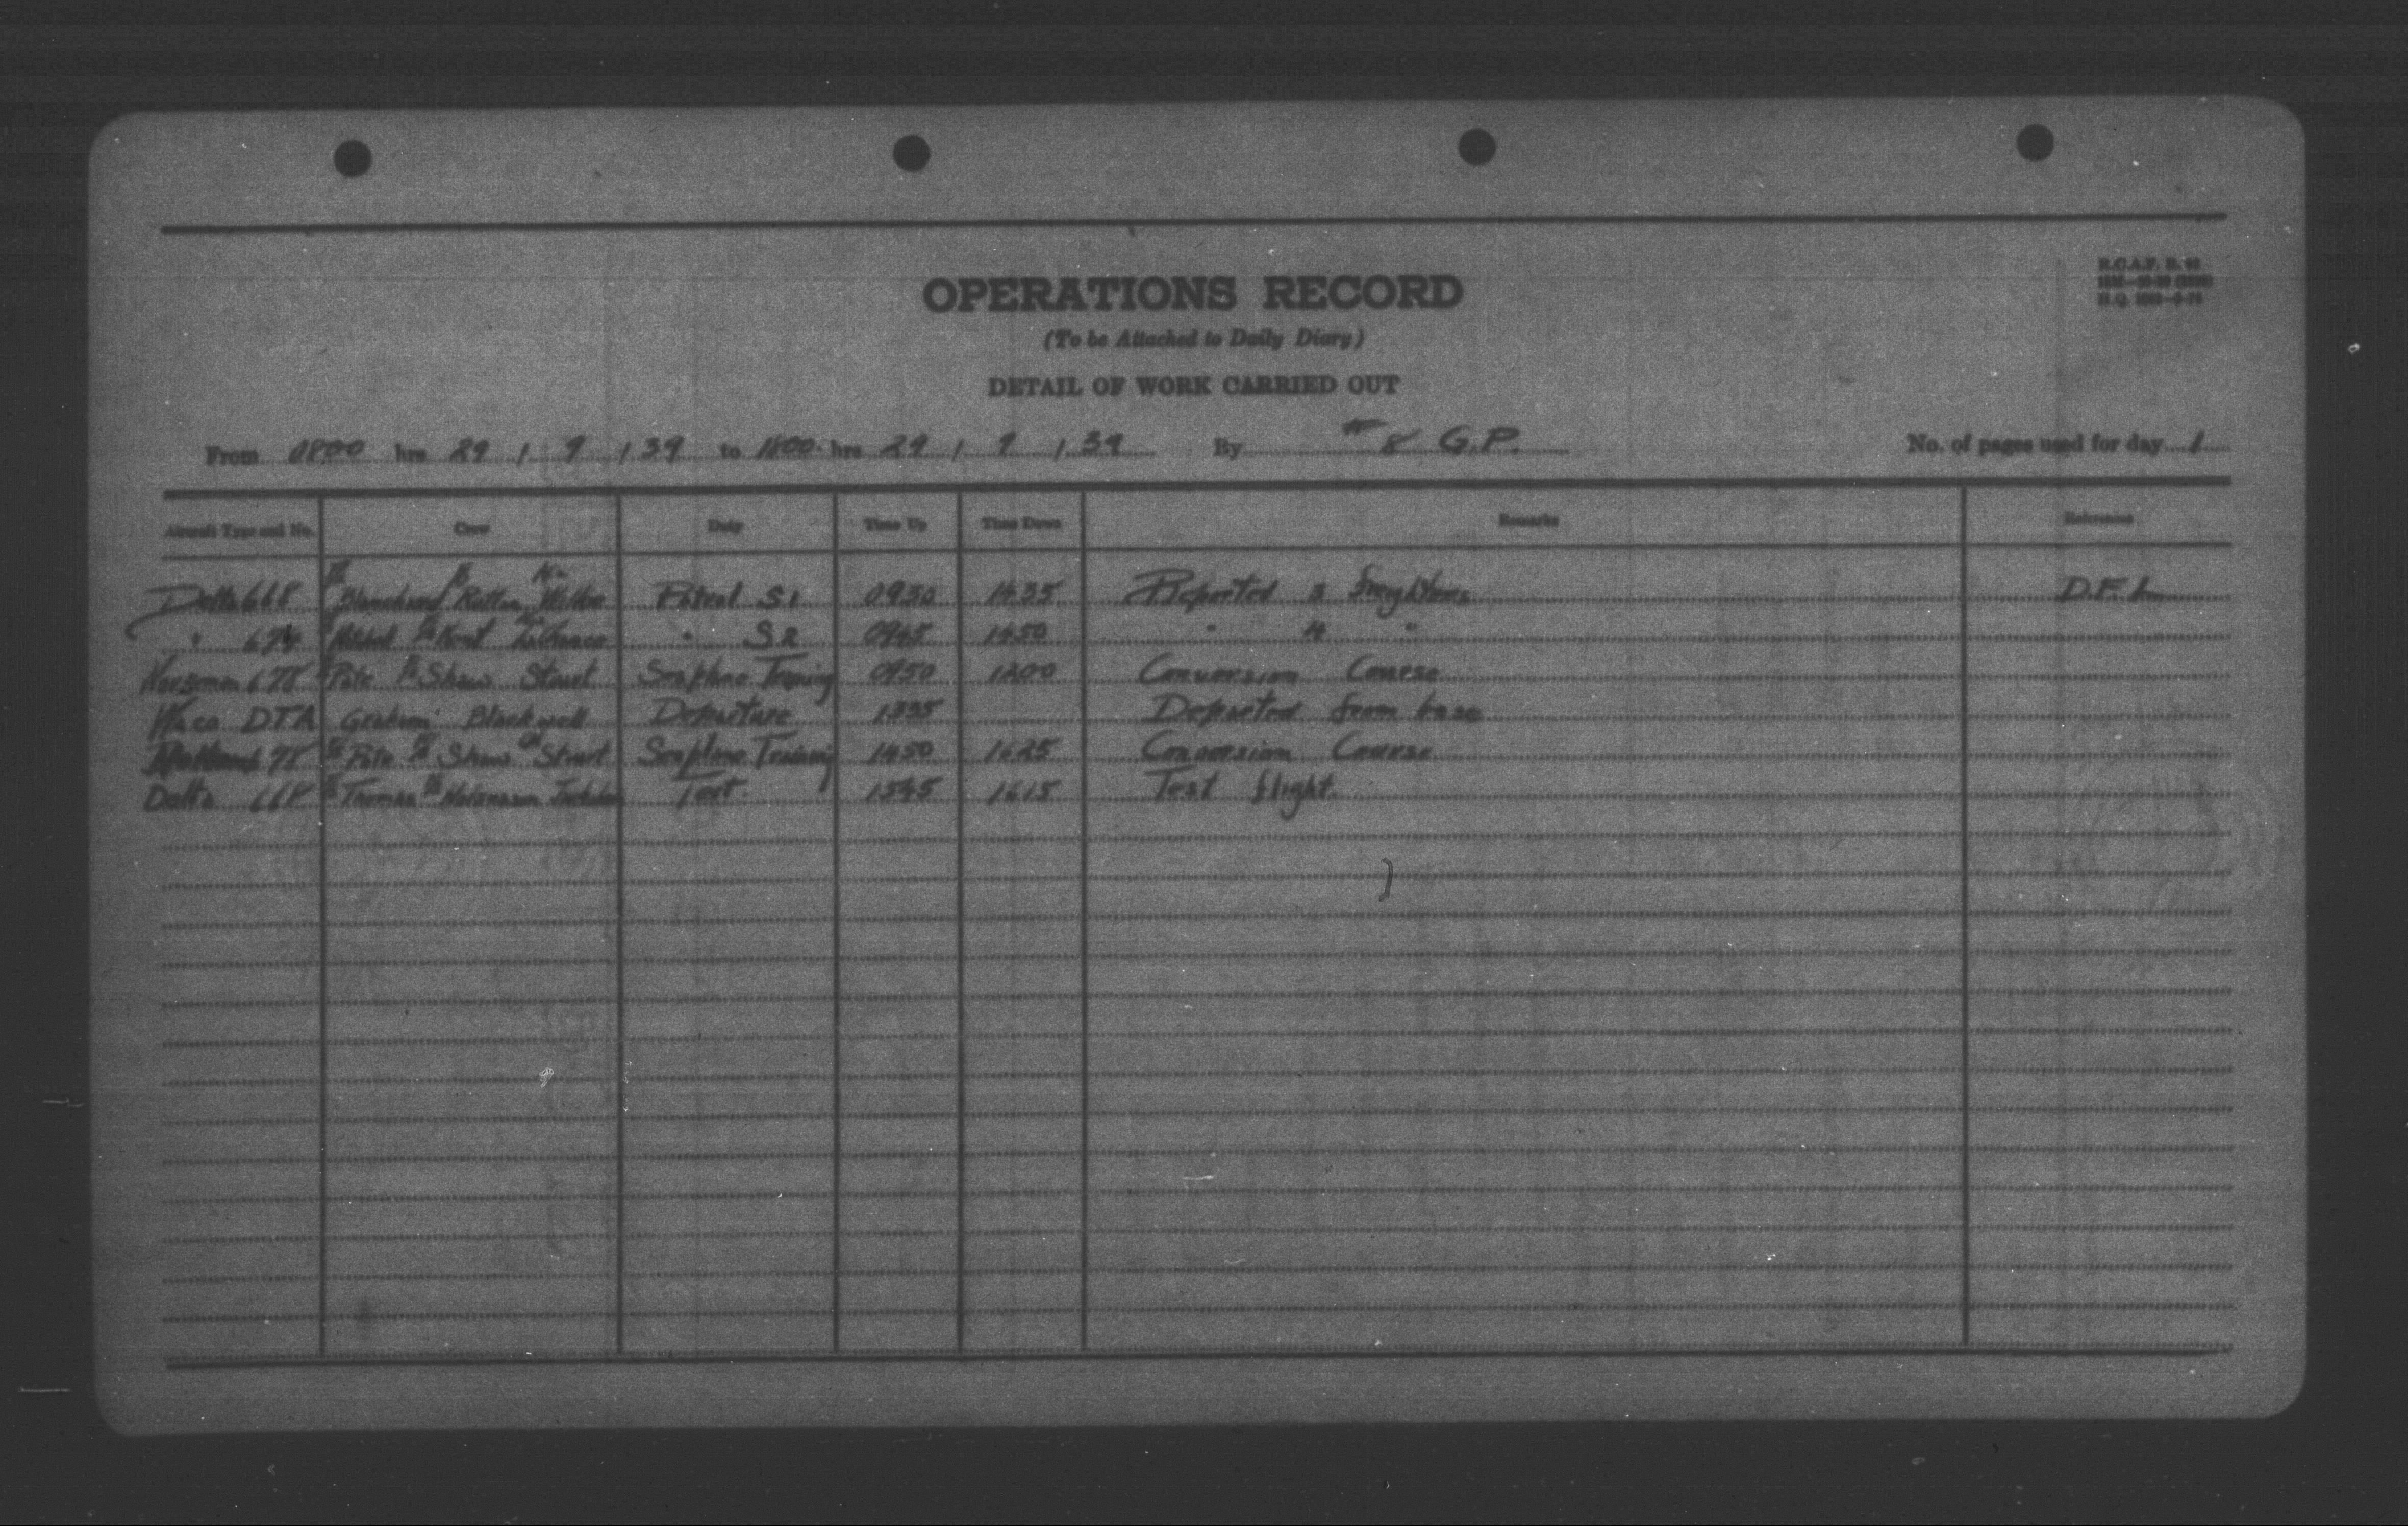 OPERATIONS RECORD
R.C.A.F. R.
(To be Attached to Daily Diary)
DETAIL OF WORK CARRIED OUT
From 0800 hrs 29 / 9 / 39 to 1800 hrs 29 / 9 / 39 By # 8 G.P. No. of pages used for day 1
Aircraft Type and No. Crew Duty Time Up Time Down Remarks Reference
Delta 668 Blanchard Patrol S1 0930 1435 Reported 3 freighters D.F.
" 674 Mitchell Kent " S2 0945 1450 " 4 "
Norseman 678 Pate Shaw Stuart Seaplane Training 0950 1200 Conversion Course
Waca DTA Graham Blackwell Departure 1335 Departed from base
678 Pate Shaw Stuart Seaplane Training 1450 1625 Conversion Course
Delta 668 Thomas Test 1545 1615 Test flight.